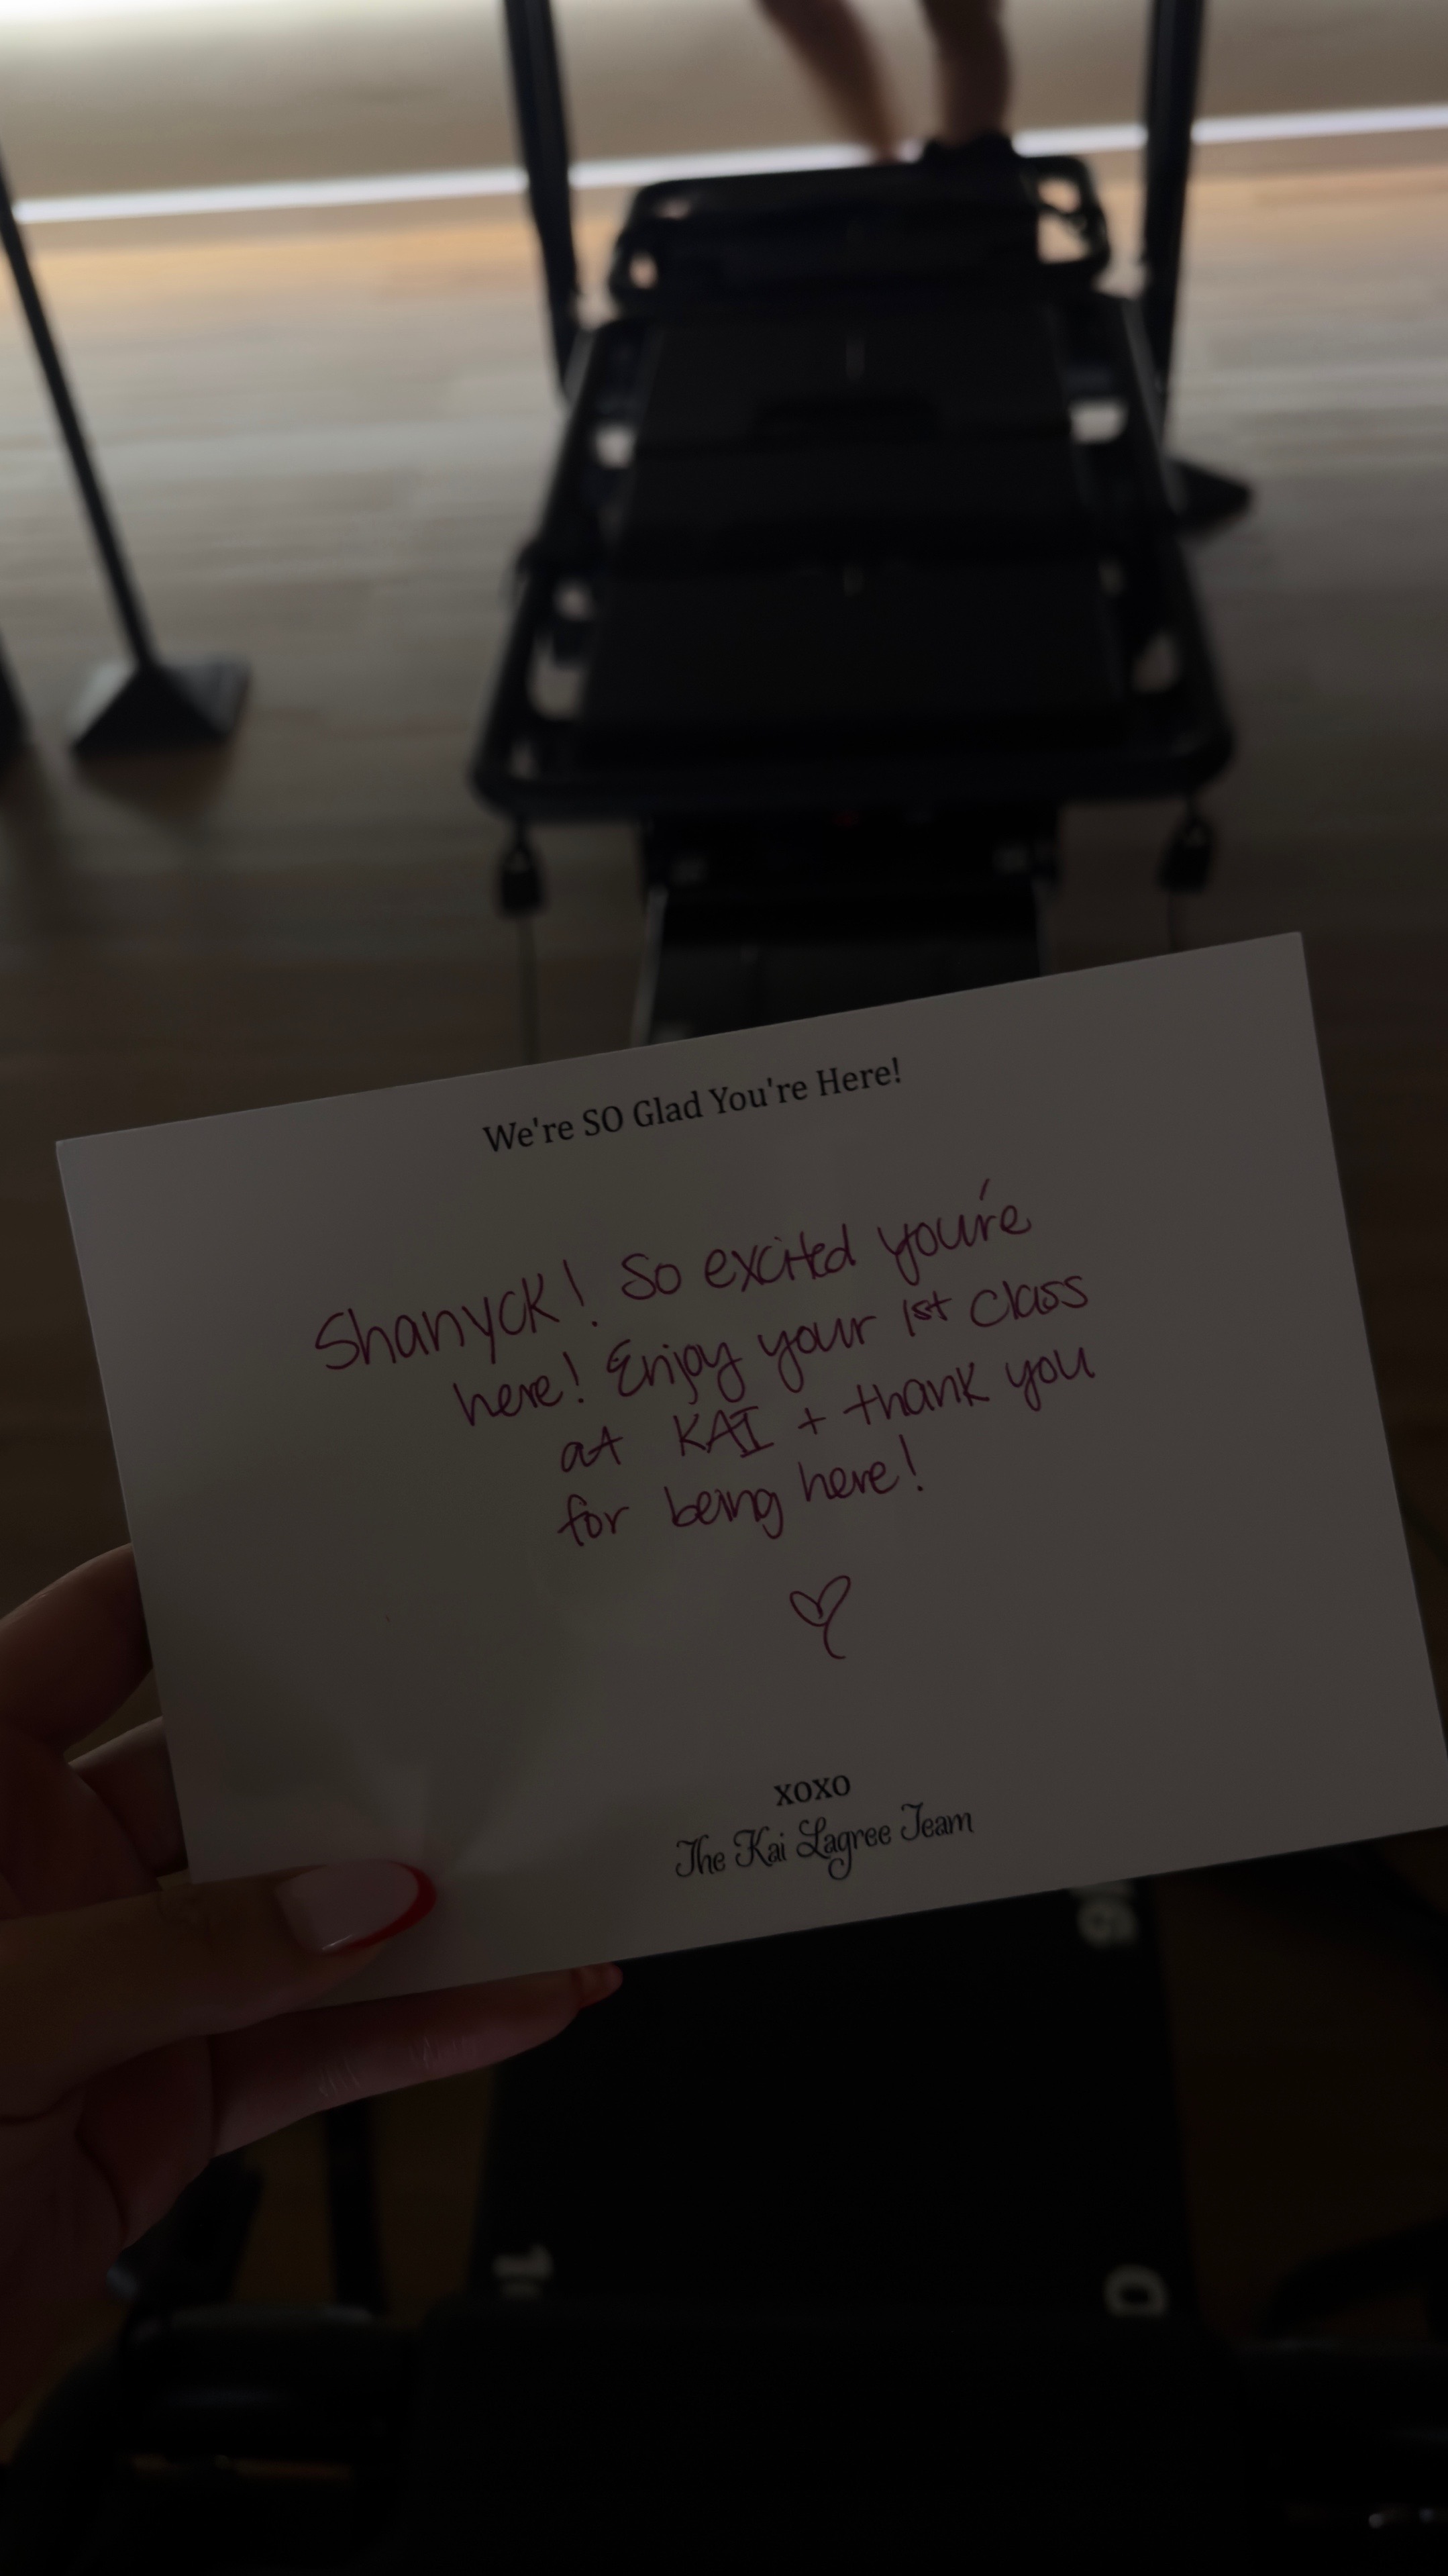 We're SO Glad You're Here!
Shanyck! So excited you're
here! Enjoy your 1st class
at KAI + thank you
for being here!
xoxo
The Kai Lagree Team
1
0